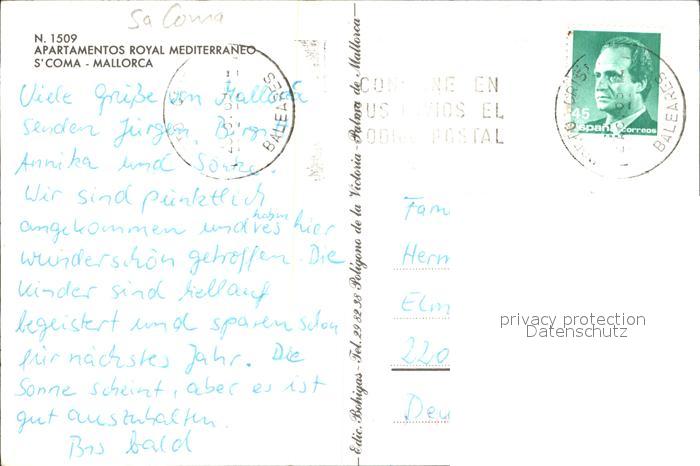 Sa Coma
N. 1509
APARTAMENTOS ROYAL MEDITERRANEO
S'COMA - MALLORCA
Viele Grüße von Mallorca
senden Jürgen, Birgit
Annika und Sönke.
Wir sind pünktlich
angekommen und haben es hier
wunderschön getroffen. Die
Kinder sind hellauf
begeistert und sparen schon
für nächstes Jahr. Die
Sonne scheint, aber es ist
gut auszuhalten.
Bis bald
Edic. Bohigas - Tel. 29 82 38 Polígono de la Victoria - Palma de Mallorca
BALEARES
NE EN
US ENVIOS EL
ODIGO POSTAL
45
España correos
BALEARES
Fam
Herr
Elm
220
Deu
privacy protection
Datenschutz